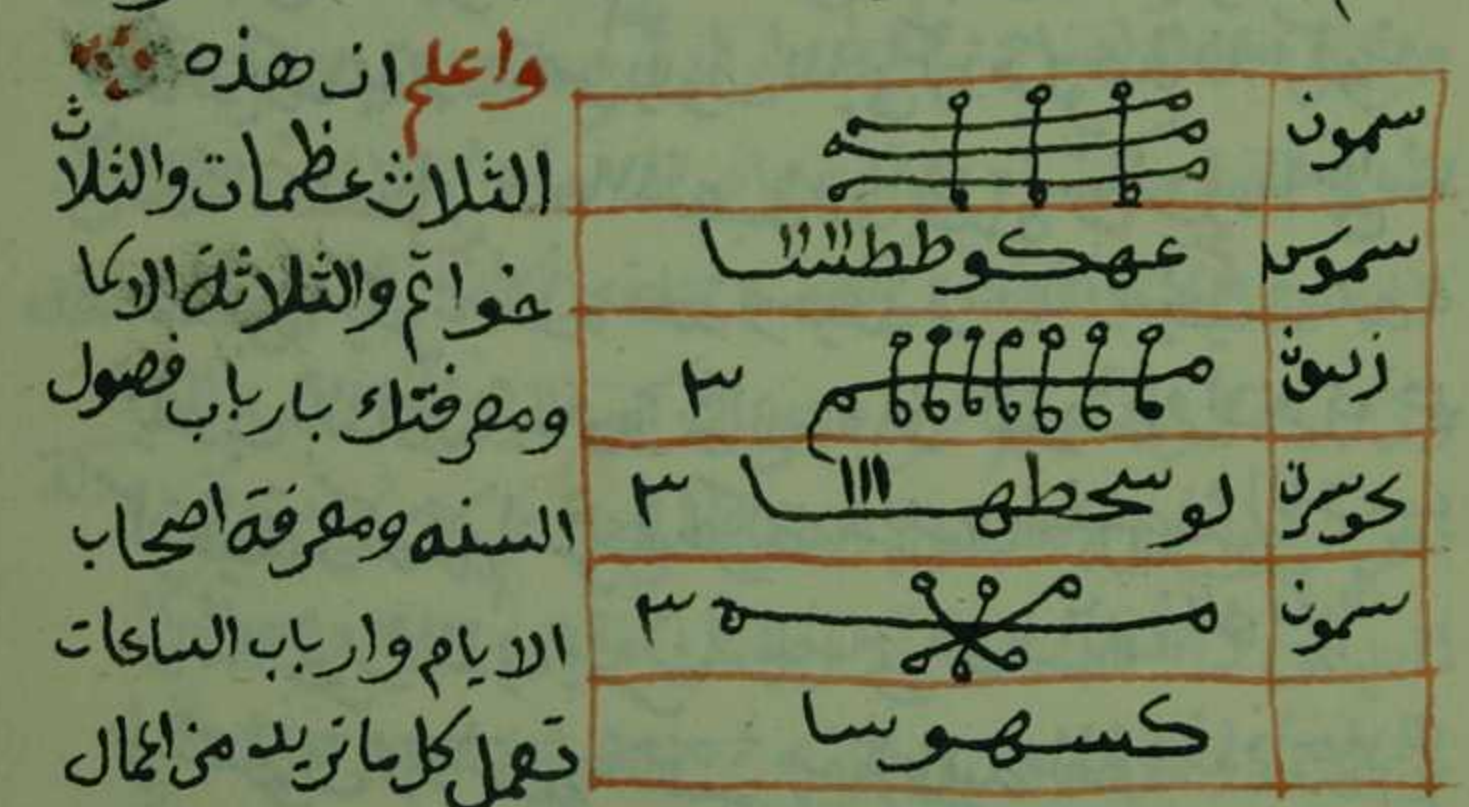 سمون
سموس عهكوططسا
زسون ٣
كوسرن لوسحطها ٣
سمون ٣
كسهوسا
واعلم ان هذه
الثلاث عظمات والثلاث
خواتم والثلاثة الاسما
ومعرفتك بارباب فصول
السنه ومعرفة اصحاب
الايام وارباب الساعات
تعمل كل ما تريد من اعمال